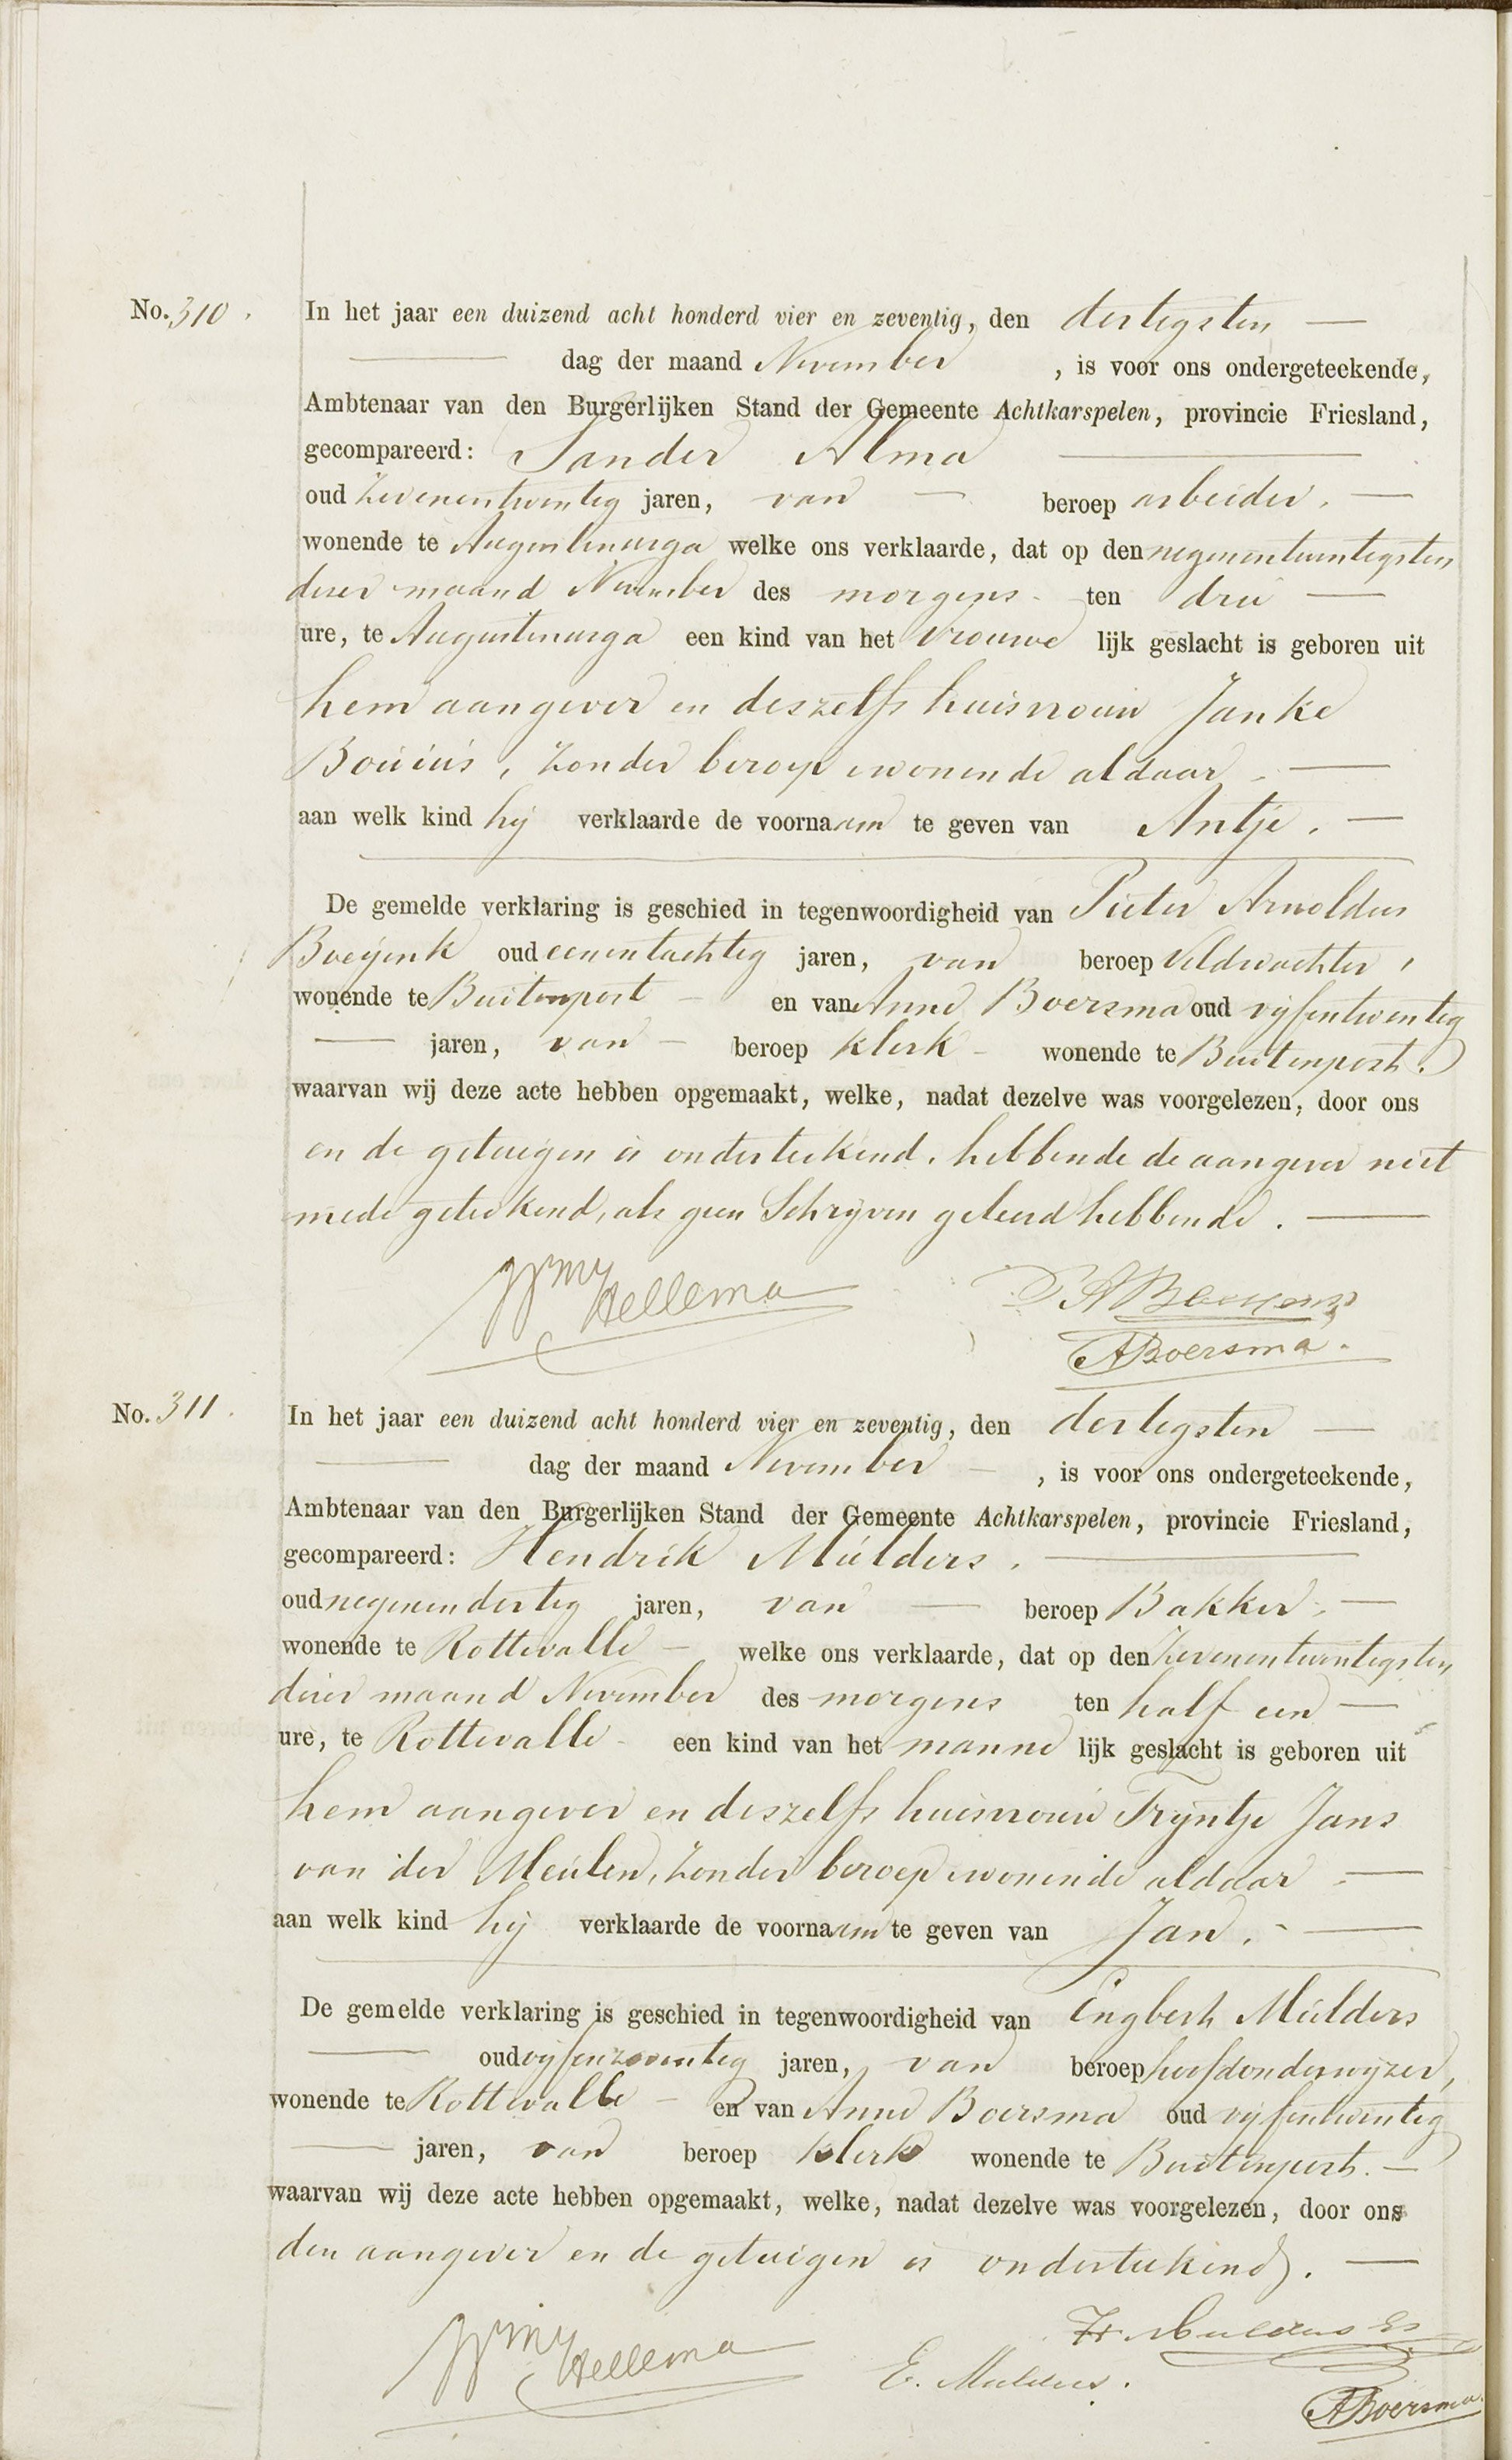 No. 310. In het jaar een duizend acht honderd vier en zeventig, den dertigsten
dag der maand November, is voor ons ondergeteekende,
Ambtenaar van den Burgerlijken Stand der Gemeente Achtkarspelen, provincie Friesland,
gecompareerd: Sander Alma
oud zevenentwintig jaren, van beroep arbeider.
wonende te Augustinusga welke ons verklaarde, dat op den negenentwintigsten
dezer maand November des morgens ten drie
ure, te Augustinusga een kind van het vrouwe lijk geslacht is geboren uit
hem aangever en deszelfs huisvrouw Janke
Bouius, zonder beroep wonende aldaar.
aan welk kind hij verklaarde de voornaam te geven van Antje.
De gemelde verklaring is geschied in tegenwoordigheid van Pieter Arnoldus
Boeyenk oud eenentachtig jaren, van beroep Veldwachter,
wonende te Buitenpost en van Anne Boersma oud vijfentwintig
jaren, van beroep klerk wonende te Buitenpost.
waarvan wij deze acte hebben opgemaakt, welke, nadat dezelve was voorgelezen, door ons
en de getuigen is onderteekend, hebbende de aangever niet
mede geteekend, als geen Schrijven geleerd hebbende.
Hellema
ABoersma.
No. 311. In het jaar een duizend acht honderd vier en zeventig, den dertigsten
dag der maand November, is voor ons ondergeteekende,
Ambtenaar van den Burgerlijken Stand der Gemeente Achtkarspelen, provincie Friesland,
gecompareerd: Hendrik Mulders.
oud negenendertig jaren, van beroep Bakker.
wonende te Rottevalle welke ons verklaarde, dat op den zevenentwintigsten
dezer maand November des morgens ten half een
ure, te Rottevalle een kind van het manne lijk geslacht is geboren uit
hem aangever en deszelfs huisvrouw Trijntje Jans
van der Meulen, zonder beroep wonende aldaar
aan welk kind hij verklaarde de voornaam te geven van Jan.
De gemelde verklaring is geschied in tegenwoordigheid van Engbert Mulders
oud vijfenzeventig jaren, van beroep hoofdonderwijzer,
wonende te Rottevalle en van Anne Boersma oud vijfentwintig
jaren, van beroep klerk wonende te Buitenpost.
waarvan wij deze acte hebben opgemaakt, welke, nadat dezelve was voorgelezen, door ons
den aangever en de getuigen is onderteekend.
Hellema
E. Mulders.
ABoersma.